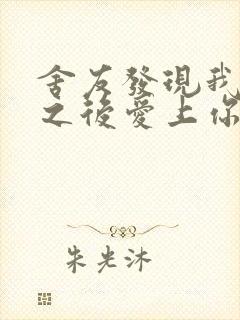 舍友發現我
之後愛上你
朱光沐